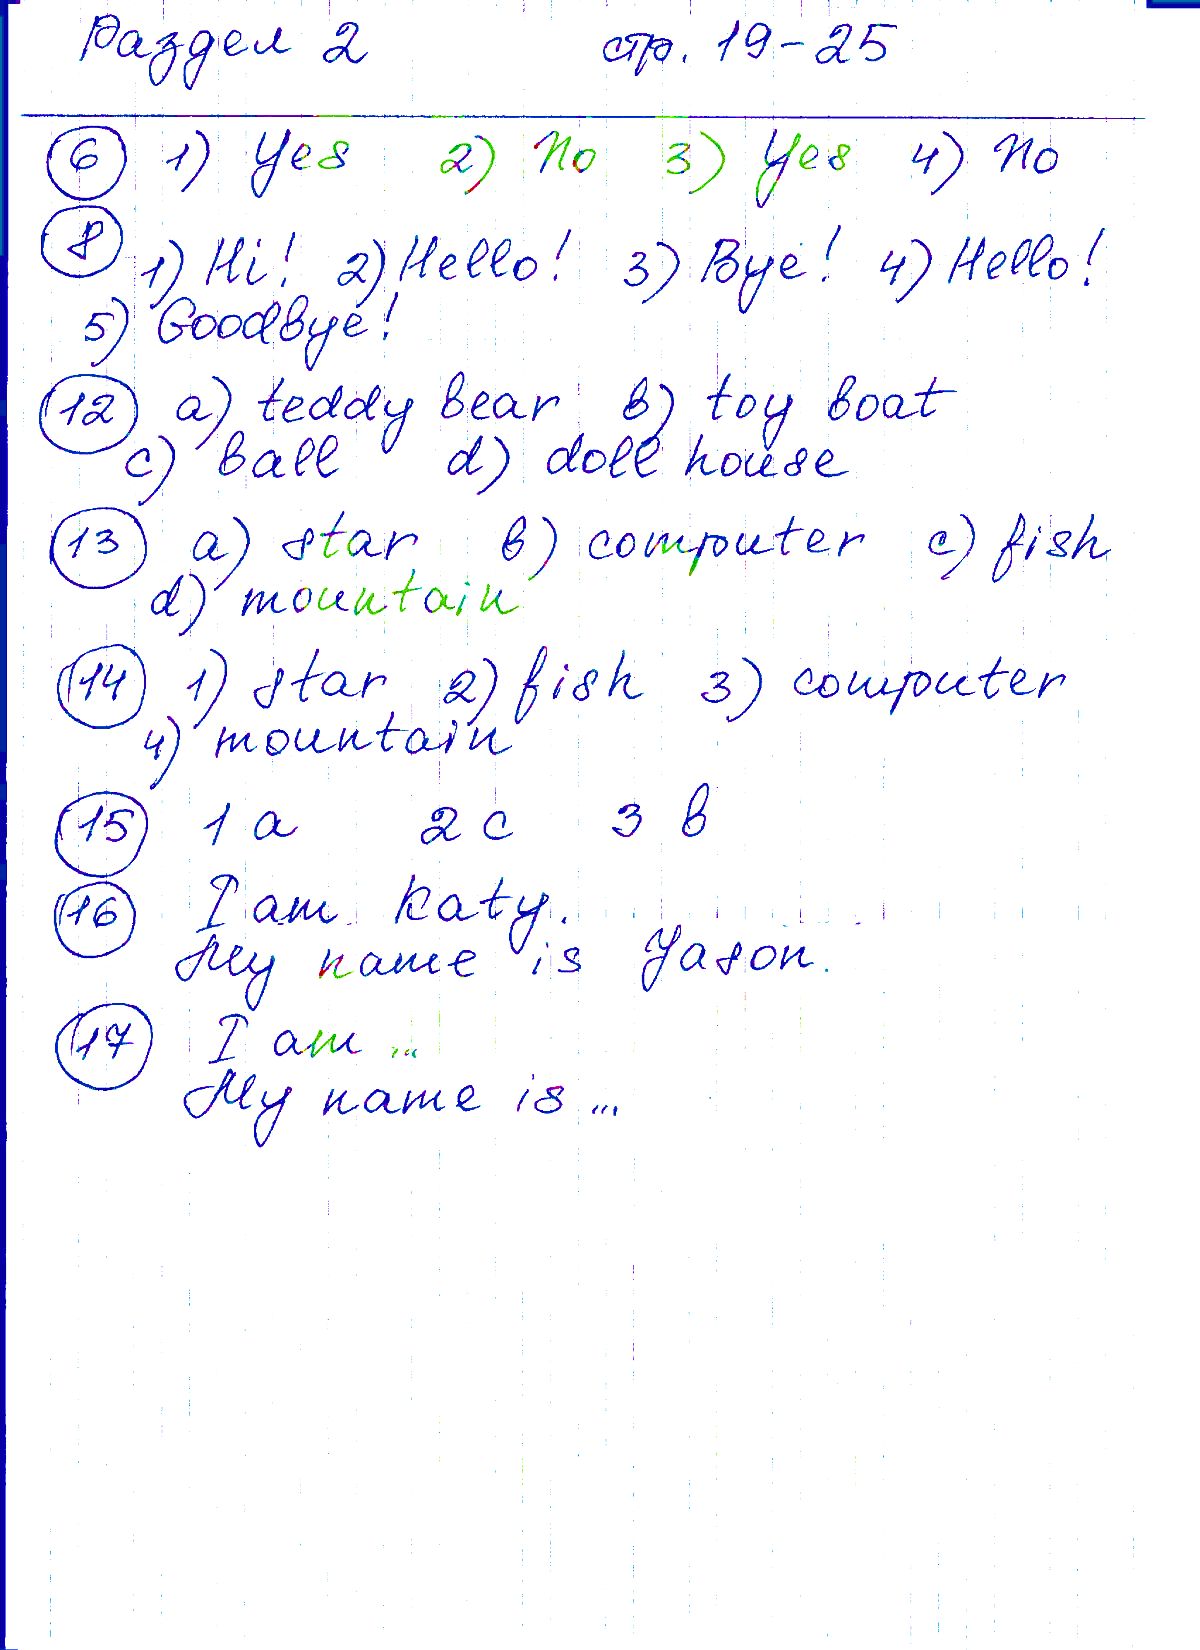 Раздел 2 стр. 19-25
6 1) Yes 2) No 3) Yes 4) No
8 1) Hi! 2) Hello! 3) Bye! 4) Hello!
5) Goodbye!
12 a) teddy bear b) toy boat
c) ball d) doll house
13 a) star b) computer c) fish
d) mountain
14 1) star 2) fish 3) computer
4) mountain
15 1 a 2 c 3 b
16 I am Katy.
My name is Jason.
17 I am ...
My name is ...